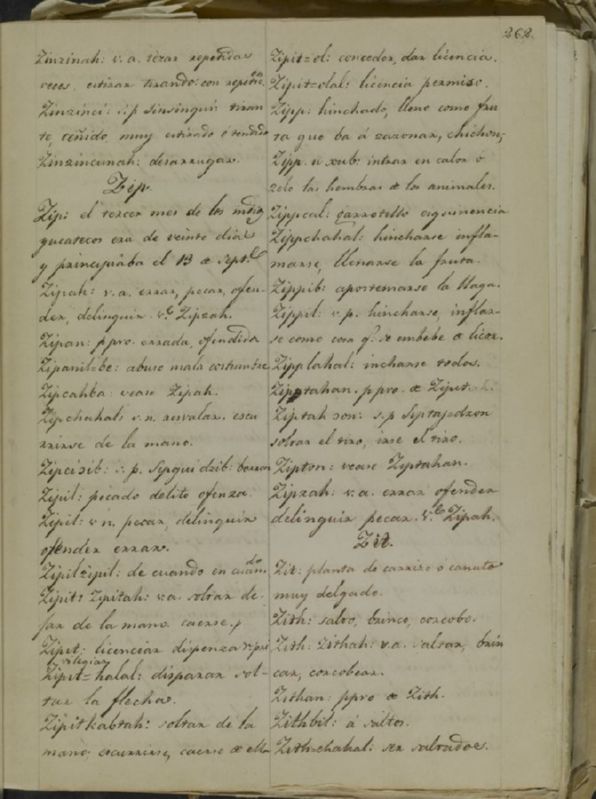 262.
Zinzinah: v. a. tezar repetidas
veces. estirar tirando: con repetic.on
Zinzinci: s. p sinsinqui: tiran
te, teñido, muy estirado o tendido
Zinzincunah: desarrugar.
Zip.
Zip: el tercer mes de los
yucatecos era de veinte dias
y principiaba el 13 de Sept.e
Zipah: v. a. errar, pecar, ofen-
der, delinquir v.e Zipzah.
Zipan: ppro. errada, ofendida
Zipanil=be: abuso mala costumbre
Zipcahba: vease Zipah.
Zipchahal: v. n. resvalar. escu
rrirse de la mano.
Zipcizib: s. p. Sipqui dzib: borron
Zipil: pecado delito ofenza.
Zipil: v n. pecar, delinquir
ofender errar.
Zipilzipil: de cuando en cuando
Zipit: Zipitah: v. a. soltar de-
jar de la mano. caerse.
Zipit: licenciar dispenza v. pri
vilegiar
Zipit=halal: disparar sol-
tar la flecha.
Zipitkabtah: soltar de la
mano, escurrirse, caerse de ella
Zipit=ol: conceder, dar licencia.
Zipit=olal: licencia permiso.
Zipp: hinchado, lleno como fru
ta que ba á zazonar, chichon,
Zipp. u xub: intrar en calor o
zelo las hembras de los animales.
Zippcal: garrotillo esquinencia
Zippchahal: hincharse infla-
marse, llenarse la fruta.
Zippib: apostemarse la llaga.
Zippil: v. p. hincharse, inflar-
se como cosa q.e se embebe de licor.
Zipplahal: incharse todos.
Ziptahan. ppro. de Zipit
Ziptah son: s. p Siptaj dzon
soltar el tiro, irse el tiro.
Zipton: vease Ziptahan.
Zipzah: v. a. errar ofender
delinquir pecar. v.e Zipah.
Zit.
Zit: planta de carrizo o canuto
muy delgado.
Zith: salto, brinco, corcobo.
Zith: Zithah: v. a. saltar, brin
car, corcobear.
Zithan: ppro de Zith.
Zithbil: á saltos.
Zith=chahal: ser saltado.